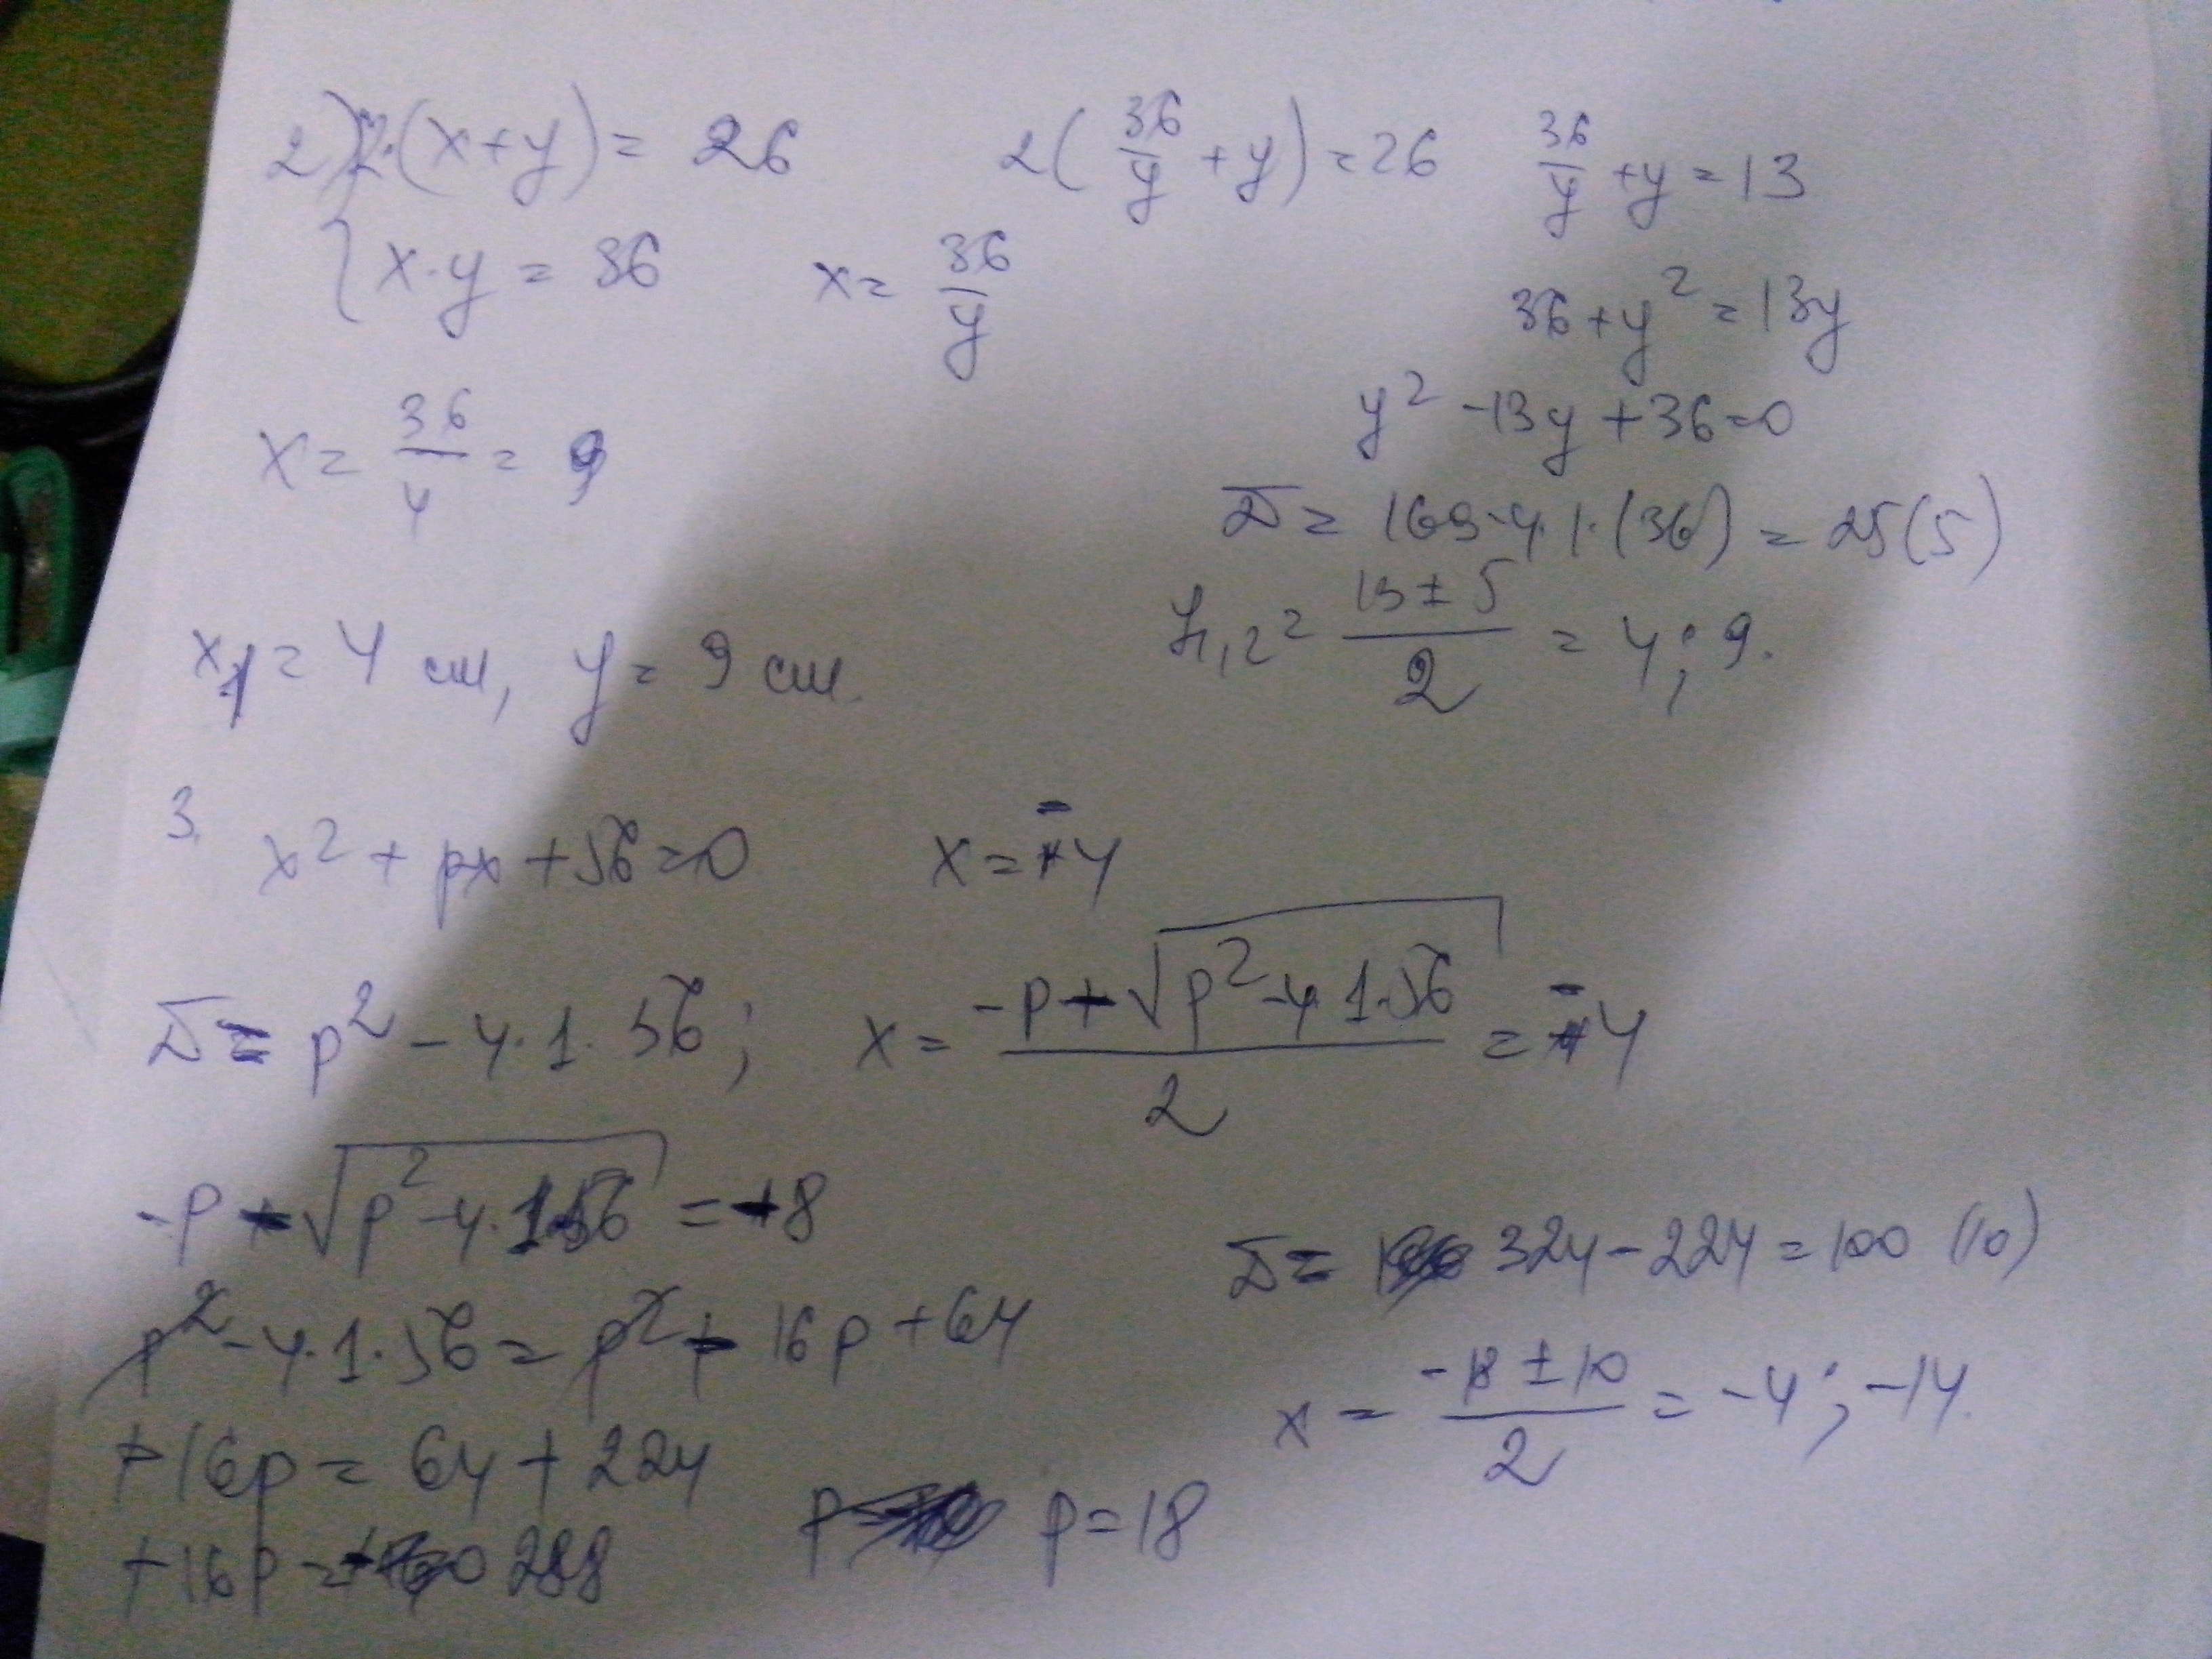 2) 2·(x+y) = 26    2(36/y + y) = 26    36/y + y = 13
{ x·y = 36    x = 36/y
36 + y² = 13y
y² - 13y + 36 = 0
x = 36/4 = 9
D = 169 - 4·1·(36) = 25(5)
y₁,₂ = (13 ± 5)/2 = 4; 9.
x₁ = 4 см, y = 9 см.
3. x² + px + 56 = 0    x = -4
D = p² - 4·1·56;    x = (-p + √(p² - 4·1·56))/2 = -4
-p + √(p² - 4·1·56) = -8
p² - 4·1·56 = p² - 16p + 64
+16p = 64 + 224
+16p = 288
p = 18
D = 324 - 224 = 100 (10)
x = (-18 ± 10)/2 = -4; -14.